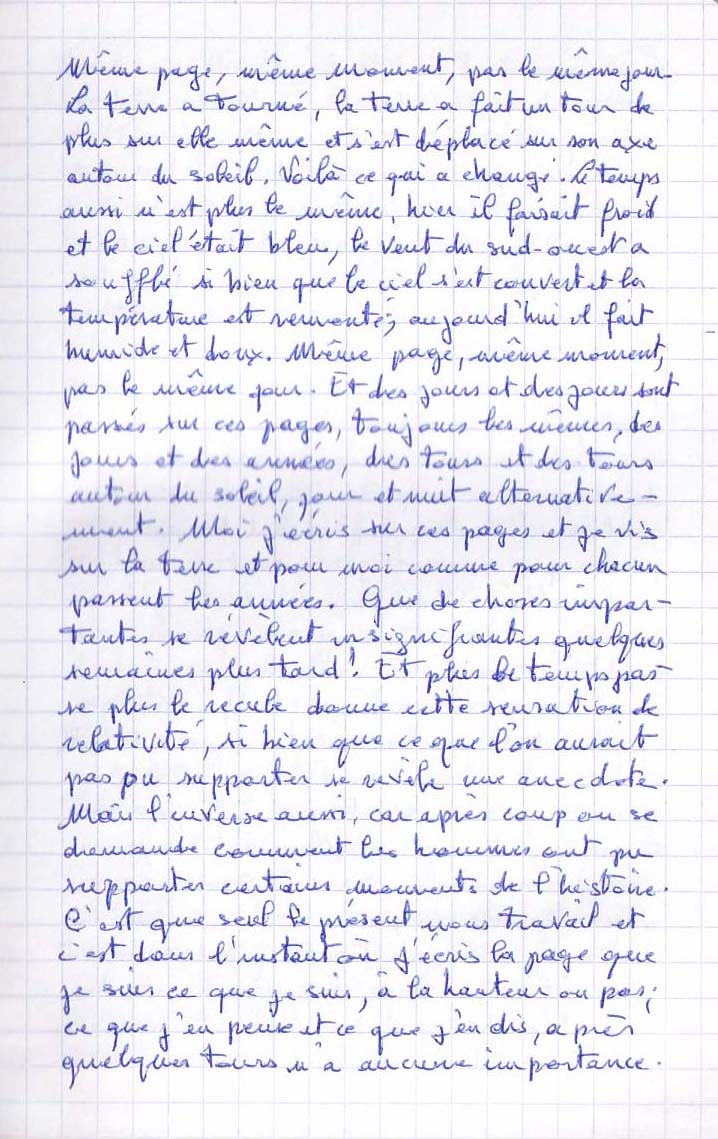 Même page, même moment, pas le même jour.
La terre a tourné, la terre a fait un tour de
plus sur elle même et s'est déplacé sur son axe
autour du soleil. Voilà ce qui a changé. Le temps
aussi n'est plus le même, hier il faisait froid
et le ciel était bleu, le vent du sud-ouest a
soufflé si bien que le ciel s'est couvert et la
température est remontée, aujourd'hui il fait
humide et doux. Même page, même moment,
pas le même jour. Et des jours et des jours sont
passés sur ces pages, toujours les mêmes, des
jours et des années, des tours et des tours
autour du soleil, jour et nuit alternative-
ment. Moi j'écris sur ces pages et je vis
sur la terre et pour moi comme pour chacun
passent les années. Que de choses impor-
tantes se révèlent insignifiantes quelques
semaines plus tard ! Et plus le temps pas-
se plus le recule donne cette sensation de
relativité, si bien que ce que l'on aurait
pas pu supporter se révèle une anecdote.
Mais l'inverse aussi, car après coup on se
demande comment les hommes ont pu
supporter certains moments de l'histoire.
C'est que seul le présent nous travail et
c'est dans l'instant où j'écris la page que
je suis ce que je suis, à la hauteur ou pas ;
ce que j'en pense et ce que j'en dis, après
quelques tours n'a aucune importance.